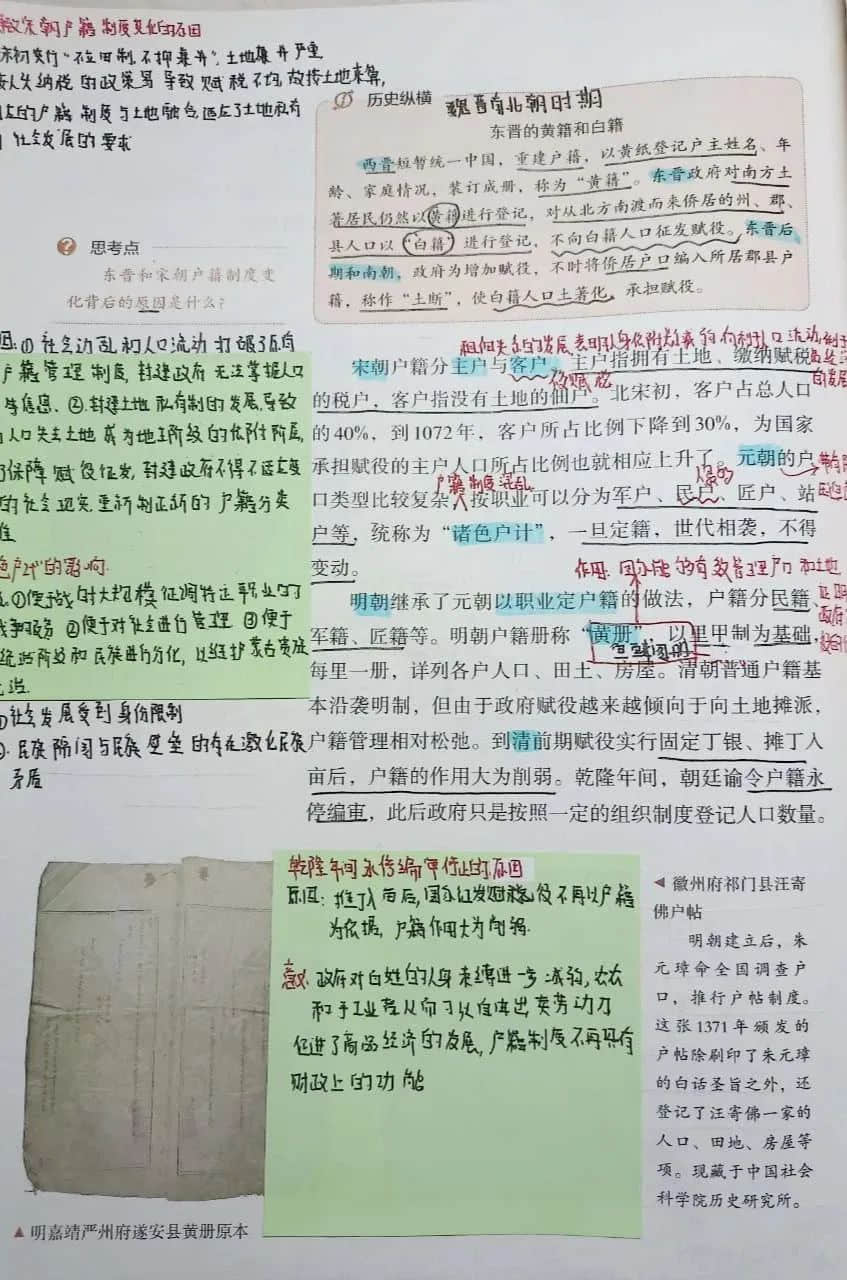 宋朝户籍制度变化的原因
宋初实行"不立田制,不抑兼并",土地兼并严重
按人头纳税的政策易导致赋税不均,故按土地来算,
的户籍制度与土地融合,适应了土地私有
社会发展的要求
历史纵横 魏晋南北朝时期
东晋的黄籍和白籍
西晋短暂统一中国,重建户籍,以黄纸登记户主姓名、年
龄、家庭情况,装订成册,称为“黄籍”。东晋政府对南方土
著居民仍然以黄籍进行登记,对从北方南渡而来侨居的州、郡、
县人口以“白籍”进行登记,不向白籍人口征发赋役。东晋后
期和南朝,政府为增加赋役,不时将侨居户口编入所居郡县户
籍,称作“土断”,使白籍人口土著化,承担赋役。
思考点
东晋和宋朝户籍制度变
化背后的原因是什么?
①社会动乱和人口流动打破了原有
户籍管理制度,封建政府无法掌握人口
信息.②封建土地私有制的发展,导致
人口失去土地成为地主阶级的依附阶层,
保障赋役征发,封建政府不得不适应
的社会现实,重新制定新的户籍分类
色户计"的影响.
①便于战时大规模征调特定职业的
服务 ②便于对社会进行管理 ③便于
统治阶级和民族进行分化,以维护蒙古贵族
统治.
①社会发展受到身份限制
②.民族隔阂与民族壁垒的存在激化民族
矛盾
租佃关系的发展,表明人身依附关系减弱,有利于人口流动
宋朝户籍分主户与客户。主户指拥有土地、缴纳赋税
的税户,客户指没有土地的佃户。北宋初,客户占总人口
的40%,到1072年,客户所占比例下降到30%,为国家
承担赋役的主户人口所占比例也就相应上升了。元朝的户
户籍制度混乱
口类型比较复杂,按职业可以分为军户、民户、匠户、站
户等,统称为“诸色户计”,一旦定籍,世代相袭,不得
变动。
作用:国家能够有效管理户口和土地
明朝继承了元朝以职业定户籍的做法,户籍分民籍、
军籍、匠籍等。明朝户籍册称“黄册”,以里甲制为基础,
鱼鳞图册
每里一册,详列各户人口、田土、房屋。清朝普通户籍基
本沿袭明制,但由于政府赋役越来越倾向于向土地摊派,
户籍管理相对松弛。到清前期赋役实行固定丁银、摊丁入
亩后,户籍的作用大为削弱。乾隆年间,朝廷谕令户籍永
停编审,此后政府只是按照一定的组织制度登记人口数量。
乾隆年间永停编审停止的原因
原因:摊丁入亩后,国家征发赋税徭役不再以户籍
为依据,户籍作用大为削弱.
意义:政府对百姓的人身束缚进一步减弱,农民
和手工业者从而可以自由出卖劳动力
促进了商品经济的发展,户籍制度不再具有
财政上的功能
▲ 明嘉靖严州府遂安县黄册原本
◀ 徽州府祁门县汪寄
佛户帖
明朝建立后,朱
元璋命全国调查户
口,推行户帖制度。
这张1371年颁发的
户帖除刷印了朱元璋
的白话圣旨之外,还
登记了汪寄佛一家的
人口、田地、房屋等
项。现藏于中国社会
科学院历史研究所。